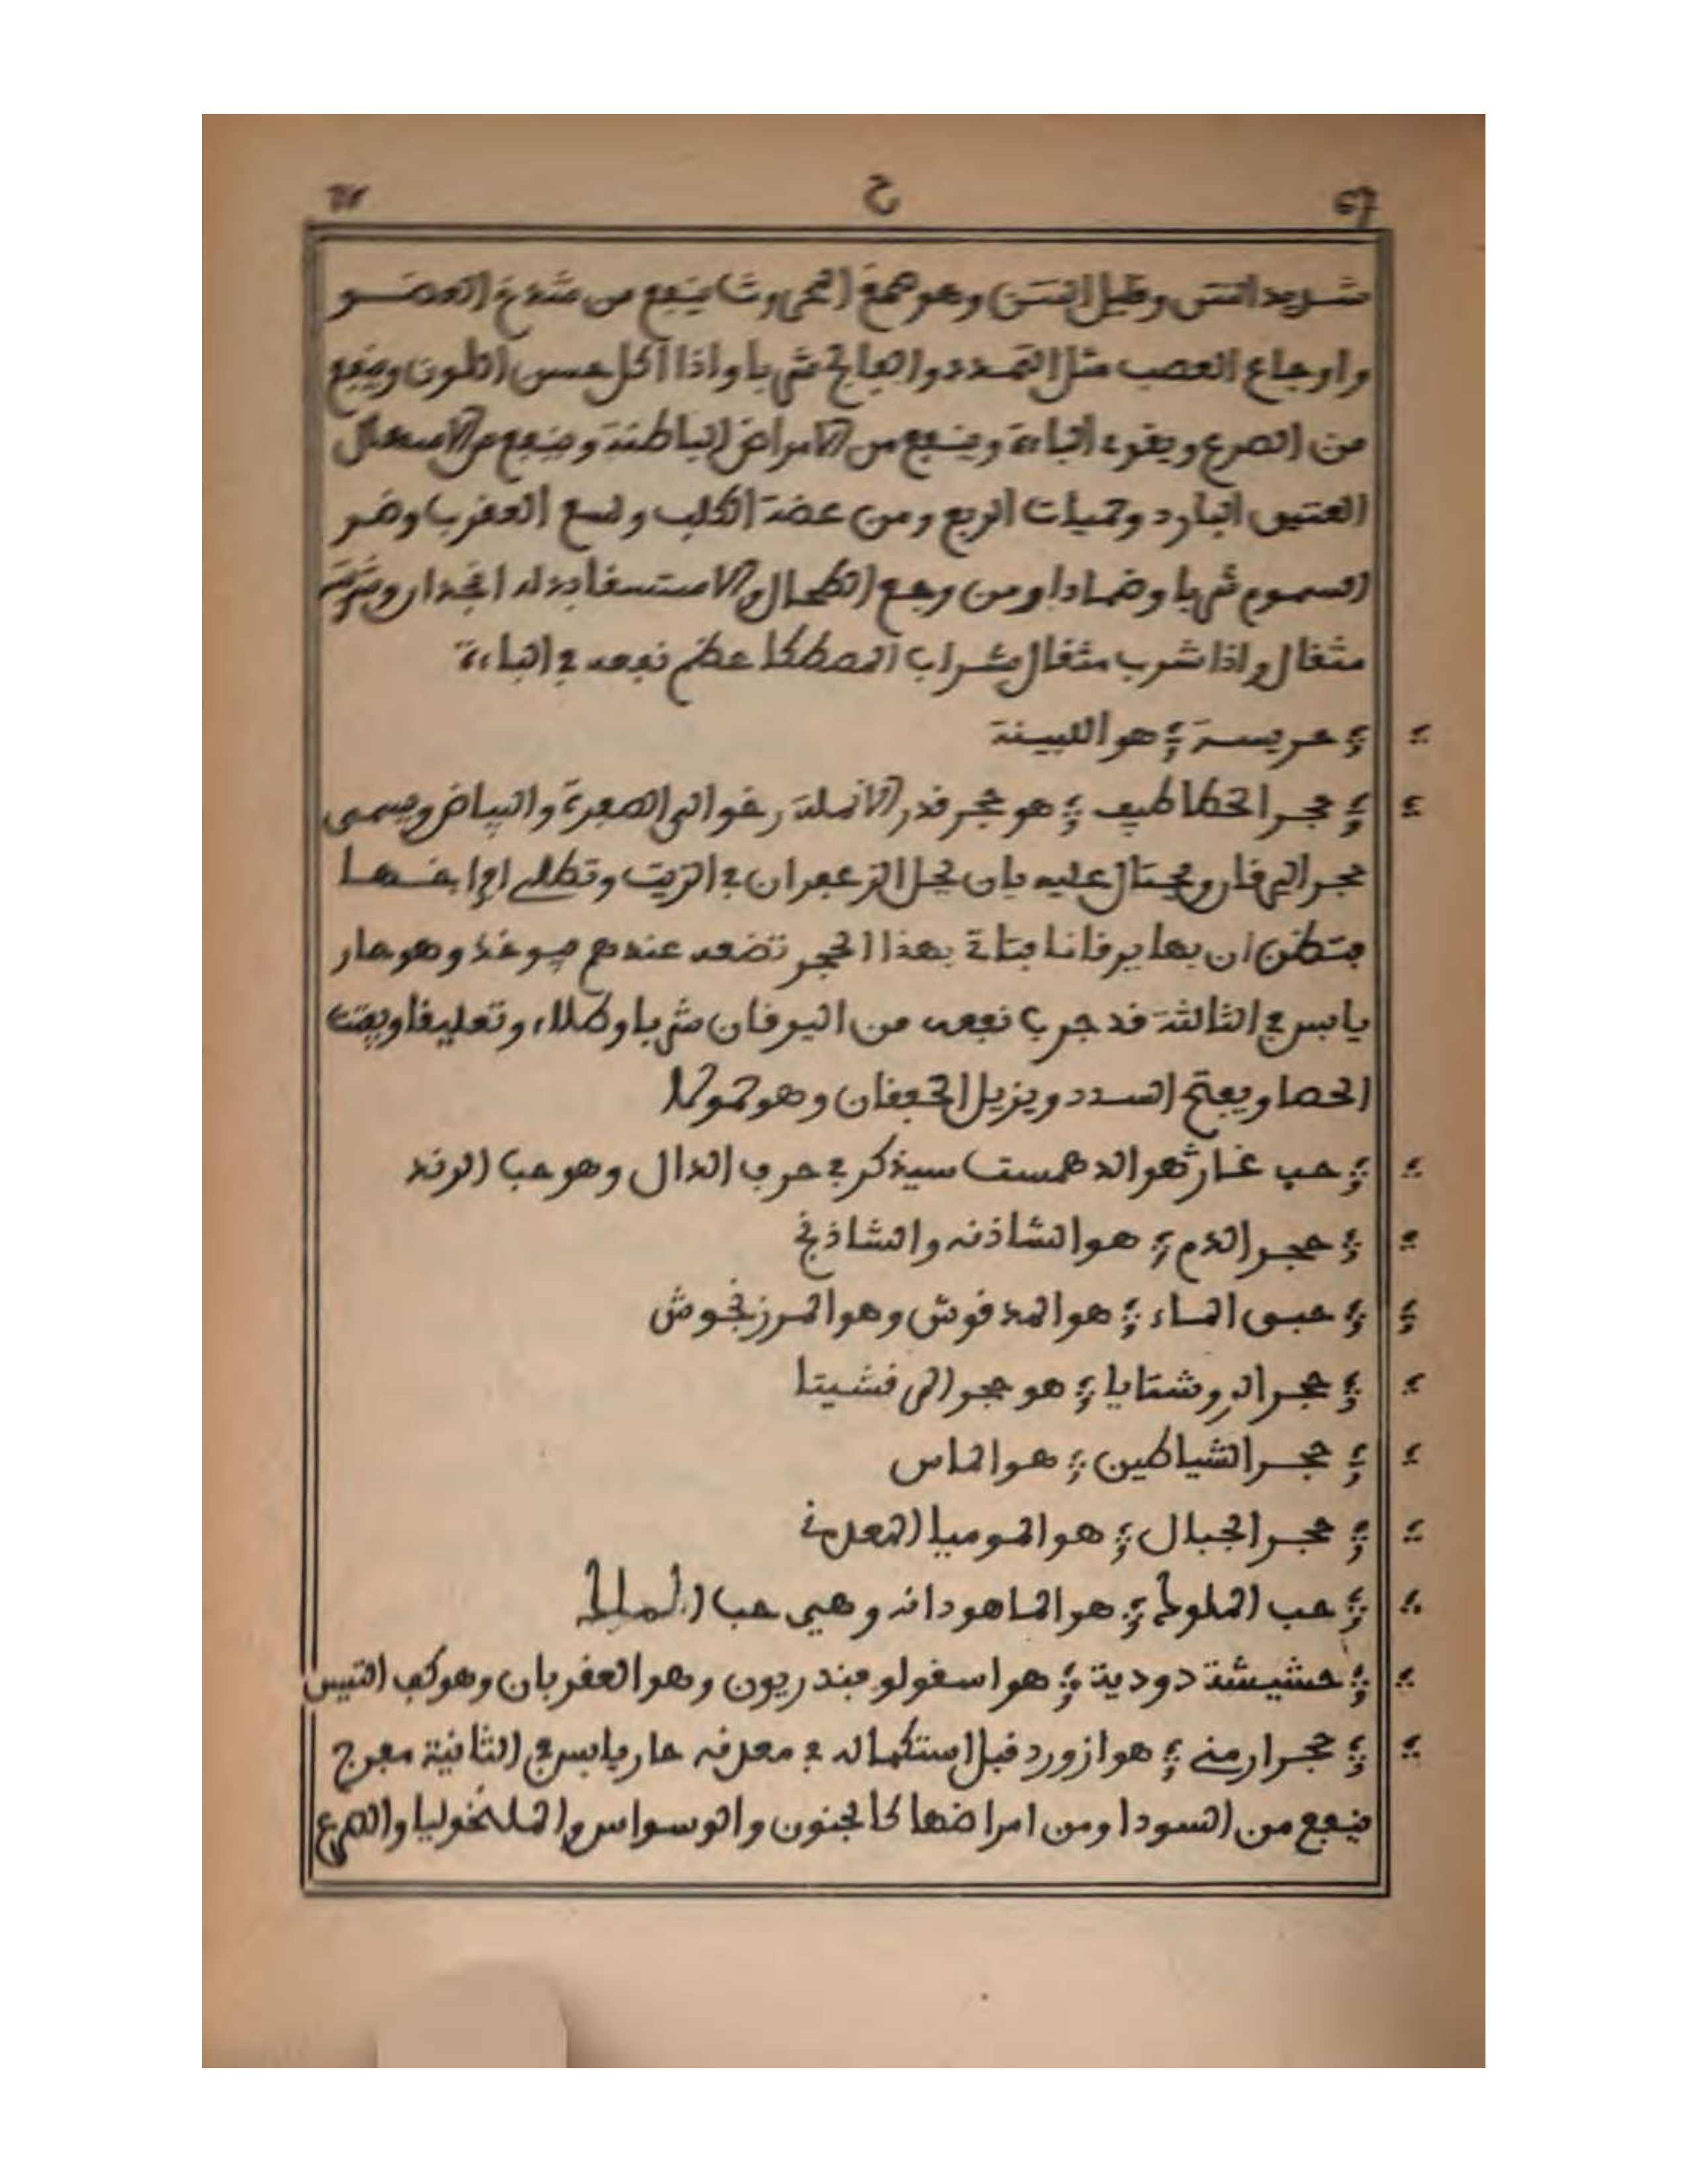 67 ح
شديد النتن وقليل النتن وهو صمغ المحروث ينفع من شدخ العضو
واوجاع العصب مثل التمدد والفالج شربا واذا اكل حسن اللون وينفع
من الصرع ويقوى الباءة وينفع من الامراض الباطنة وينفع من الاسهال
العتيق البارد وحميات الربع ومن عضة الكلب ولسع العقرب وضر
السموم شربا وضمادا ومن وجع الطحال والاستسقا بدله انجدان وشربته
مثقال واذا شرب مثقال بشراب المصطكا عظم نفعه في الباءة
حريسة هو اللبينة
حجر الخطاطيف هو حجر قدر الانملة رخو الى الصفرة والبياض ويسمى
حجر اليرقان ويحتال عليه بان يحل الزعفران في الزيت وتطلى افراخها
فتظن ان بها يرقانا فتاتي بهذا الحجر تضعه عندهم فيوخذ وهو حار
يابس في الثالثة قد جرب نفعه من اليرقان شربا وطلاء وتعليقا ويفتت
الحصا ويفتح السدد ويزيل الخفقان وهو حمولا
حب غار هو الدهمست سيذكر في حرف الدال وهو حب الرند
حجر الدم هو الشاذنه والشاذنج
حبق الماء هو المدقوش وهو المرزنجوش
حجر الروشتايا هو حجر المرقشيتا
حجر الشياطين هو الماس
حجر الجبال هو الموميا المعدني
حب الملوك هو الماهودانه وهي حب
حشيشة دودية هو اسقولوفندريون وهو العقربان وهو كف التيس
حجر ارمني هو ازورد قبل استكماله في معدنه حار يابس في الثانية مفرح
ينفع من السودا ومن امراضها كالجنون والوسواس والملنخوليا والصرع